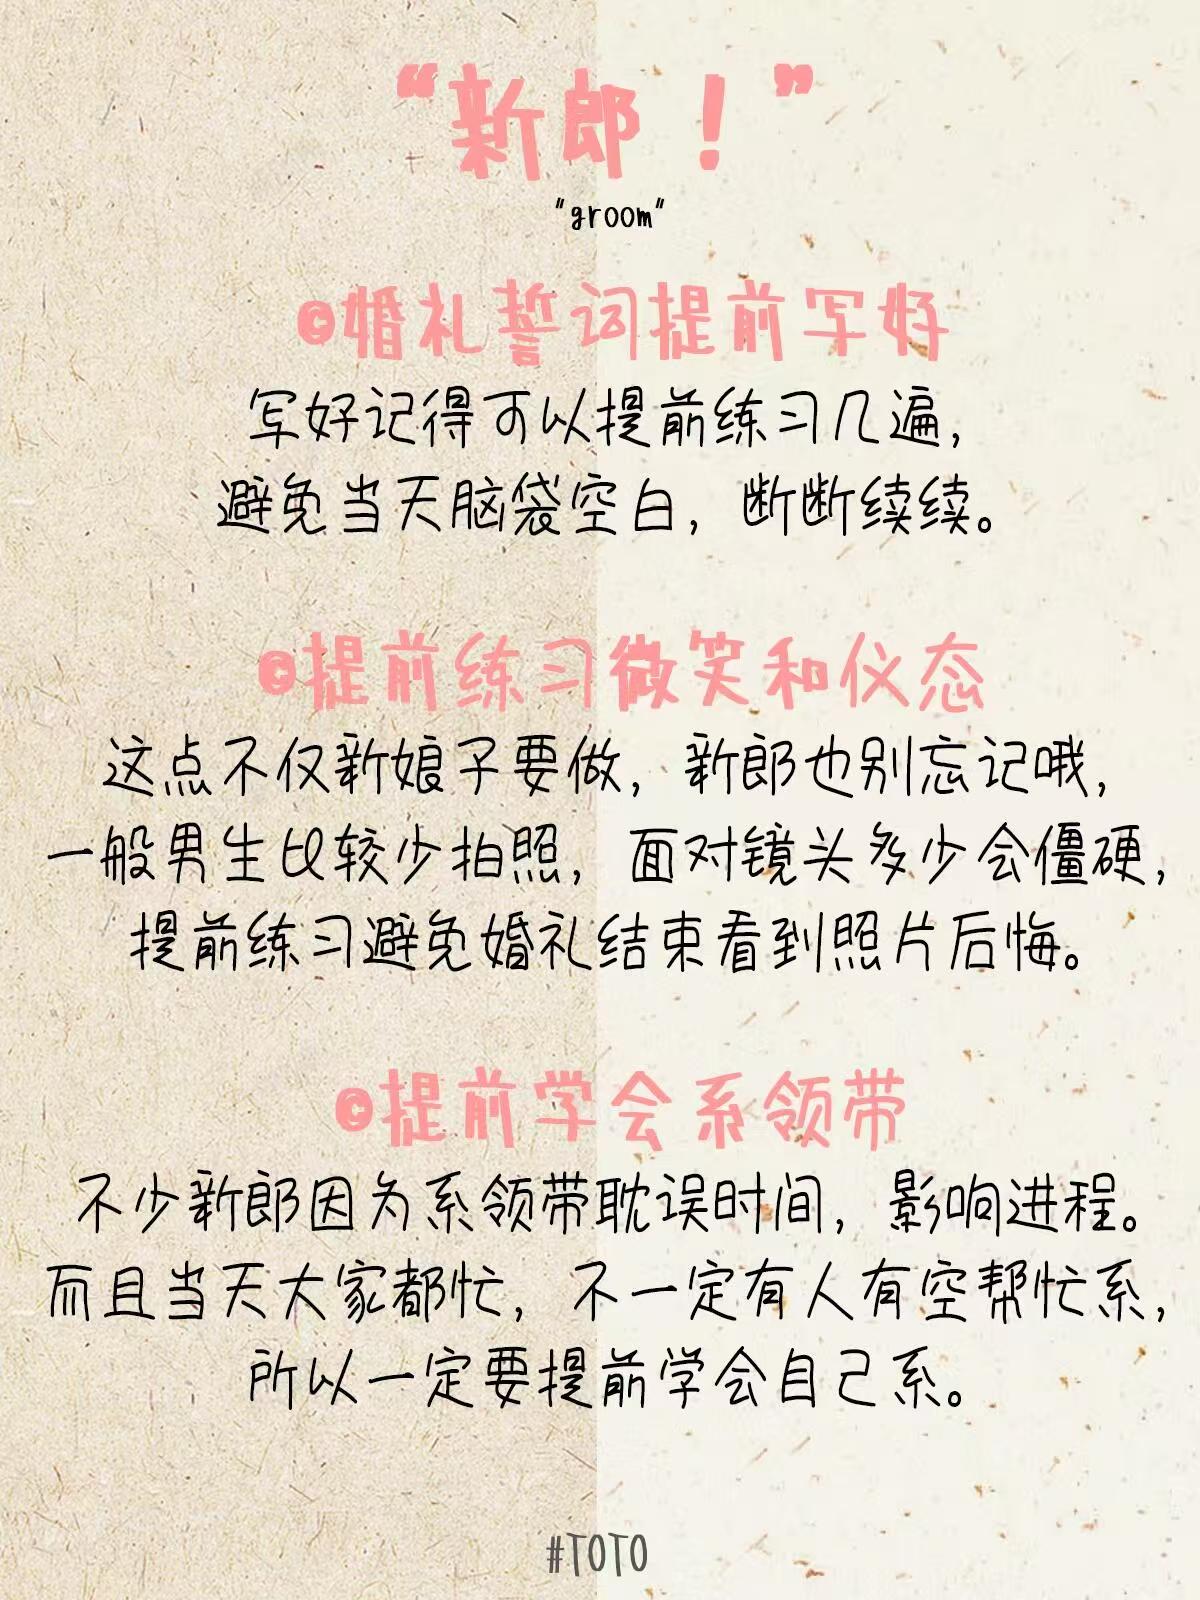 “新郎！”
"groom"
©婚礼誓词提前写好
写好记得可以提前练习几遍，
避免当天脑袋空白，断断续续。
©提前练习微笑和仪态
这点不仅新娘子要做，新郎也别忘记哦，
一般男生比较少拍照，面对镜头多少会僵硬，
提前练习避免婚礼结束看到照片后悔。
©提前学会系领带
不少新郎因为系领带耽误时间，影响进程。
而且当天大家都忙，不一定有人有空帮忙系，
所以一定要提前学会自己系。
#TOTO